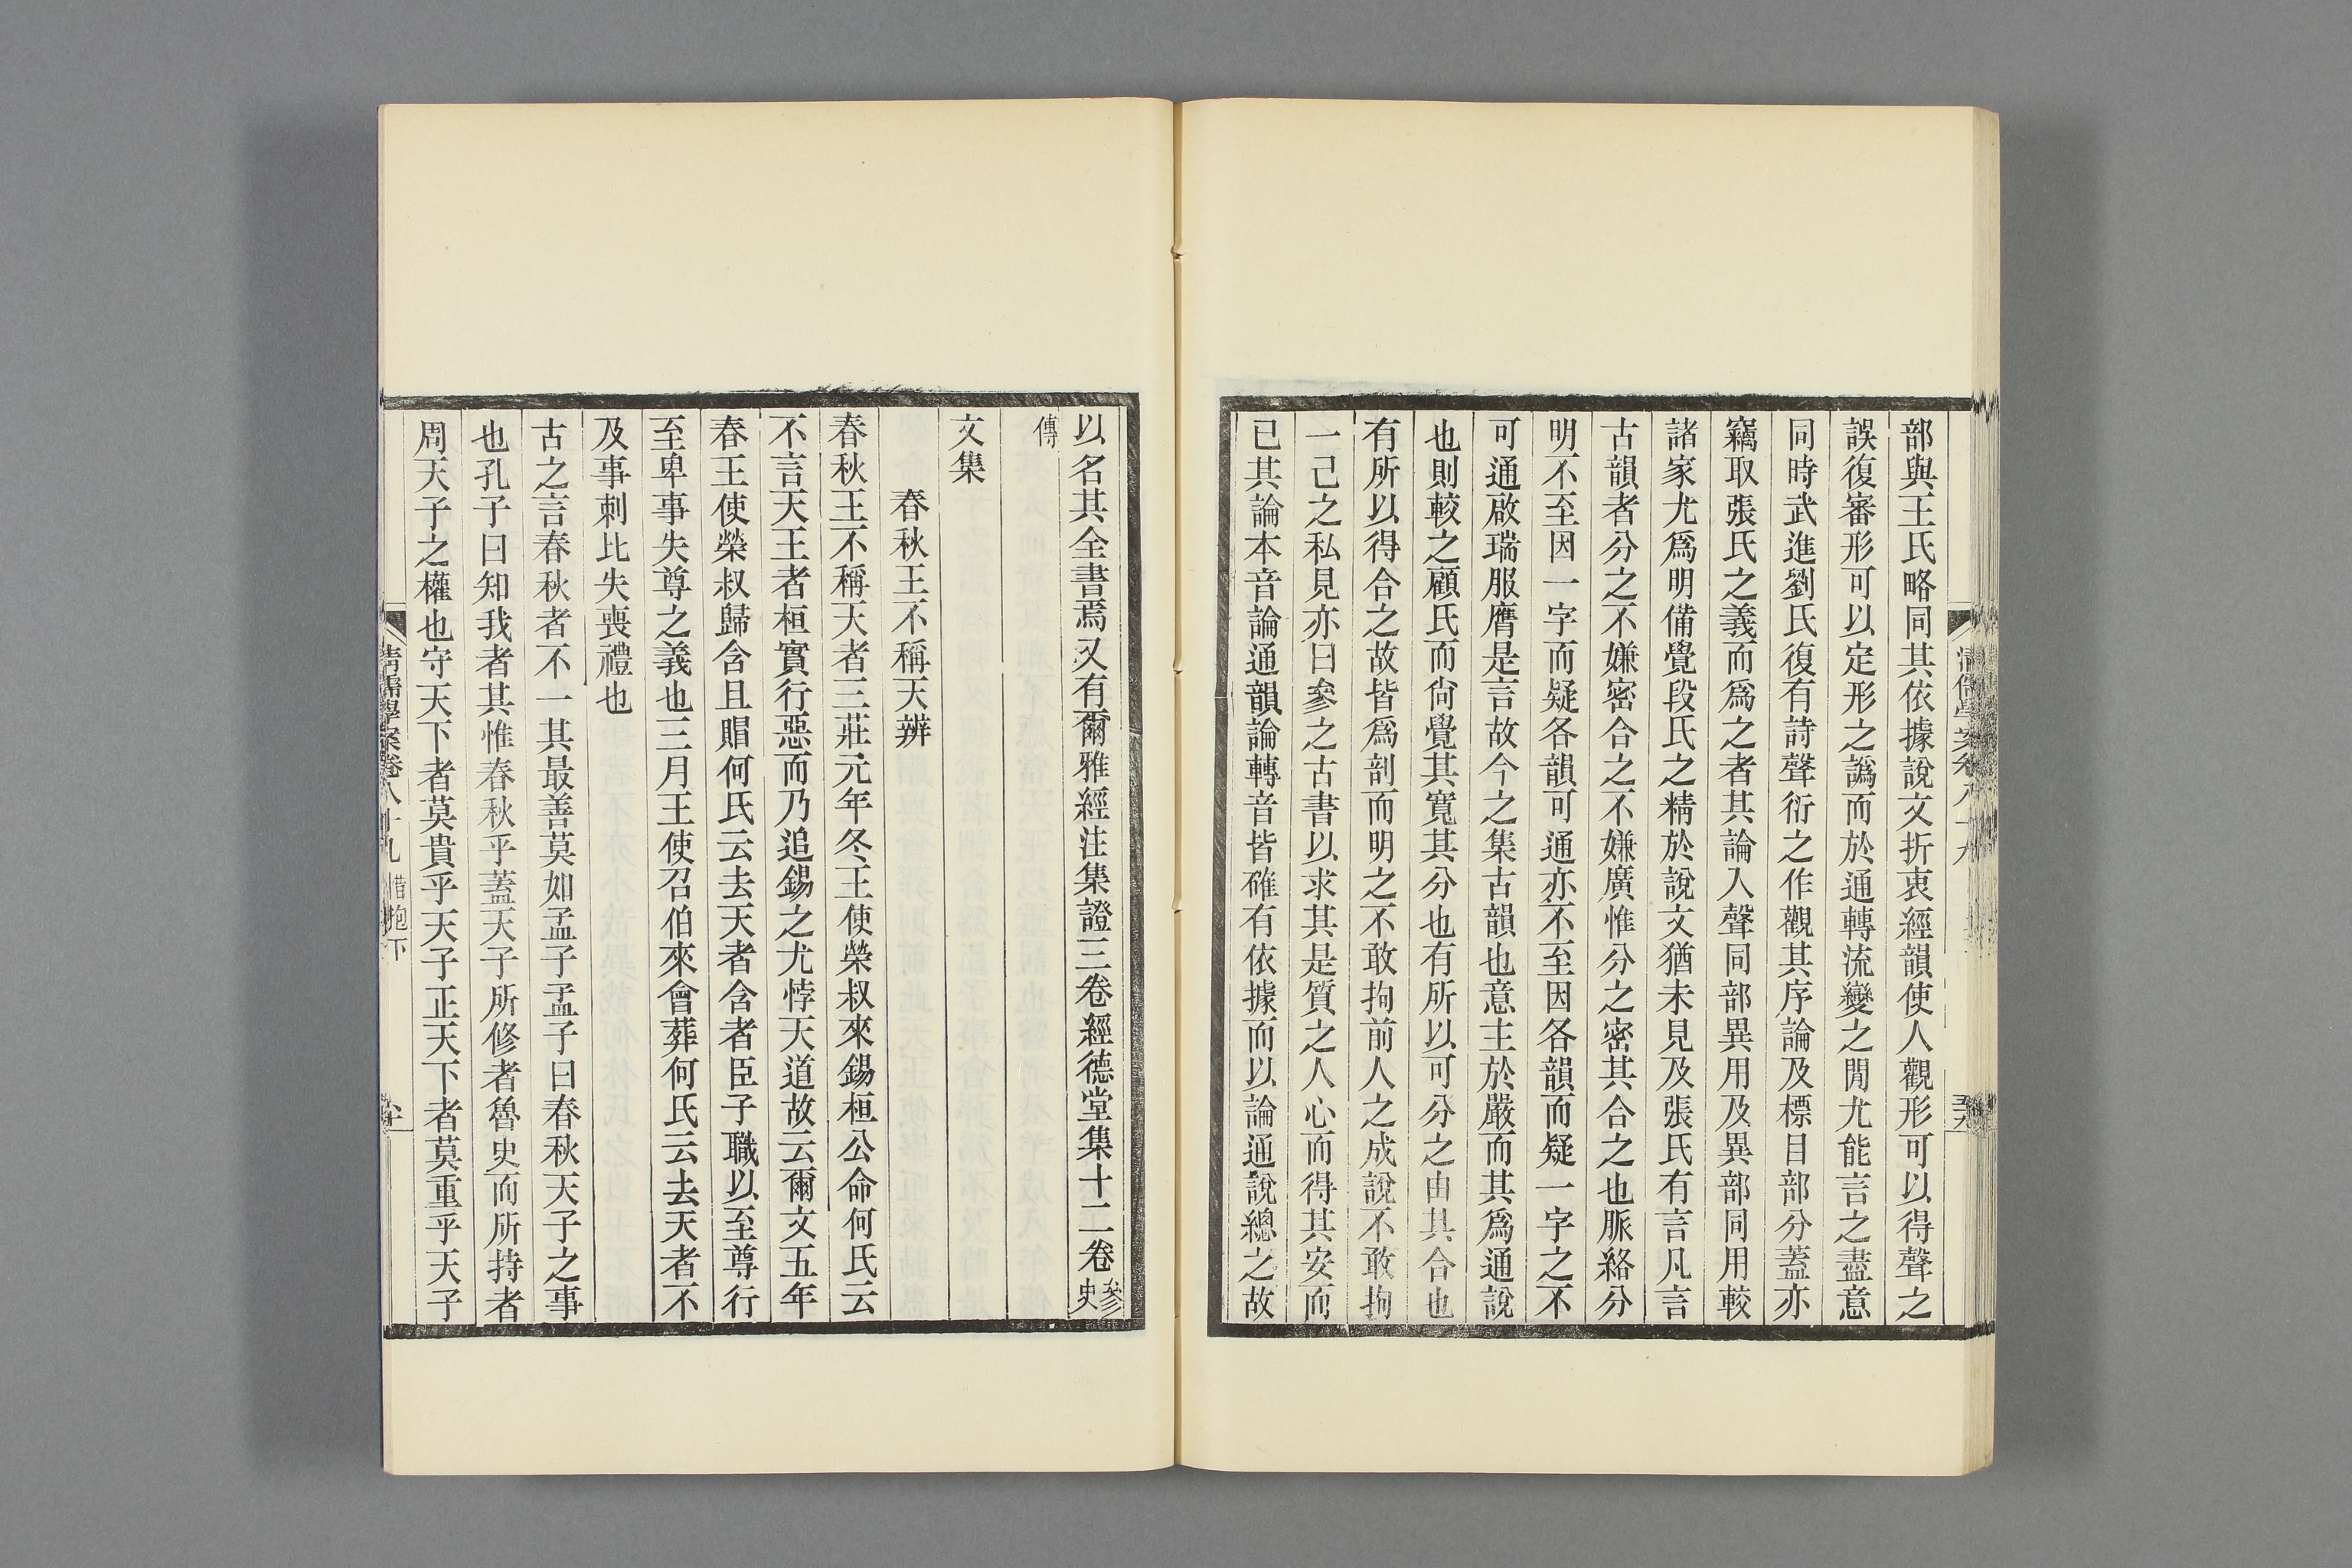 部與王氏略同其依據說文折衷經韻使人觀形可以得聲之
誤復審形可以定形之譌而於通轉流變之閒尤能言之盡意
同時武進劉氏復有詩聲衍之作觀其序論及標目部分蓋亦
竊取張氏之義而爲之者其論入聲同部異用及異部同用較
諸家尤爲明備覺段氏之精於說文猶未見及張氏有言凡言
古韻者分之不嫌密合之不嫌廣惟分之密其合之也脈絡分
明不至因一字而疑各韻可通亦不至因各韻而疑一字之不
可通啟瑞服膺是言故今之集古韻也意主於嚴而其爲通說
也則較之顧氏而尙覺其寬其分也有所以可分之由其合也
有所以得合之故皆爲剖而明之不敢拘前人之成說不敢拘
一己之私見亦曰參之古書以求其是質之人心而得其安而
已其論本音論通韻論轉音皆確有依據而以論通說總之故
以名其全書焉又有爾雅經注集證三卷經德堂集十二卷參史
傳
文集
春秋王不稱天辨
春秋王不稱天者三莊元年冬王使榮叔來錫桓公命何氏云
不言天王者桓實行惡而乃追錫之尤悖天道故云爾文五年
春王使榮叔歸含且賵何氏云去天者含者臣子職以至尊行
至卑事失尊之義也三月王使召伯來會葬何氏云去天者不
及事刺比失喪禮也
古之言春秋者不一其最善莫如孟子孟子曰春秋天子之事
也孔子曰知我者其惟春秋乎蓋天子所修者魯史而所持者
周天子之權也守天下者莫貴乎天子正天下者莫重乎天子
清儒學案卷八十九 惜抱下